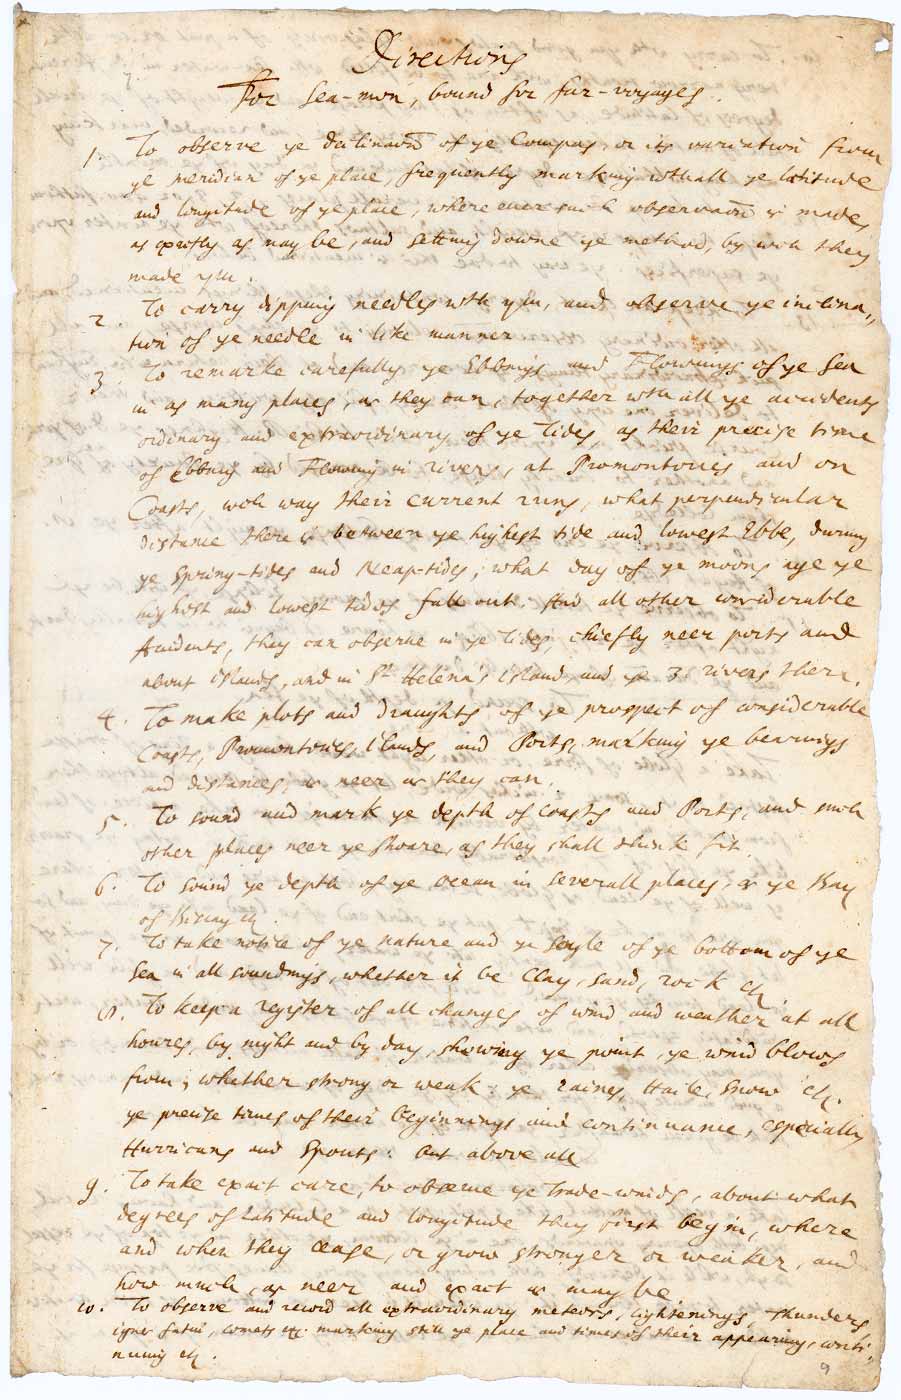 Directions
For Sea-men, bound for far-voyages.
1. To observe ye declinaõn of ye Compas, or its variation from
ye meridian of ye place, frequently marking withall ye latitude
and longitude of ye place, where ever such observaõn is made,
as exactly as may be, and setting downe ye method, by wch they
made ym.
2. To carry dipping needles wth ym, and observe ye inclina-
tion of ye needle in like manner
3. To remarke carefully ye Ebbings and Flowings of ye Sea
in as many places, as they can, together wth all ye accidents
ordinary and extraordinary of ye Tides, as their precise time
of Ebbing and Flowing in rivers, at Promontories and on
Coasts, wch way their Current runs, what perpendicular
distance there is between ye highest tide and lowest Ebbe, during
ye Spring-tides and Neap-tides; what day of ye moons age ye
highest and lowest tides fall out: And all other considerable
Accidents, they can observe in ye Tides, chiefly neer ports and
about islands, and in St Helena's island and ye 3 rivers there.
4. To make plots and draughts of ye prospect of considerable
Coasts, Promontories, Islands, and Ports, marking ye bearings
and distances, as neer as they can.
5. To sound and mark ye depth of Coasts and Ports, and such
other places neer ye shoare, as they shall think fit.
6. To sound ye depth of ye Ocean in severall places, & ye Bay
of Biscay &c.
7. To take notice of ye nature and ye soyle of ye bottom of ye
Sea in all soundings, whether it be Clay, sand, rock &c
8. To keep a register of all changes of wind and weather at all
houres, by night and by day, showing ye point, ye wind blows
from; whether strong or weak: ye raines, Haile, Snow &c.
ye precise times of their beginnings and continuance, especially
Hurricans and Spouts: but above all
9. To take exact care, to observe ye Trade-winds, about what
degrees of Latitude and longitude they first begin, where
and when they cease, or grow stronger or weaker, and
how much, as neer and exact as may be
10. To observe and record all extraordinary meteors, lightenings, Thunders,
ignes fatui, comets &c. marking still ye place and times of their appearing, conti-
nuing &c.
9